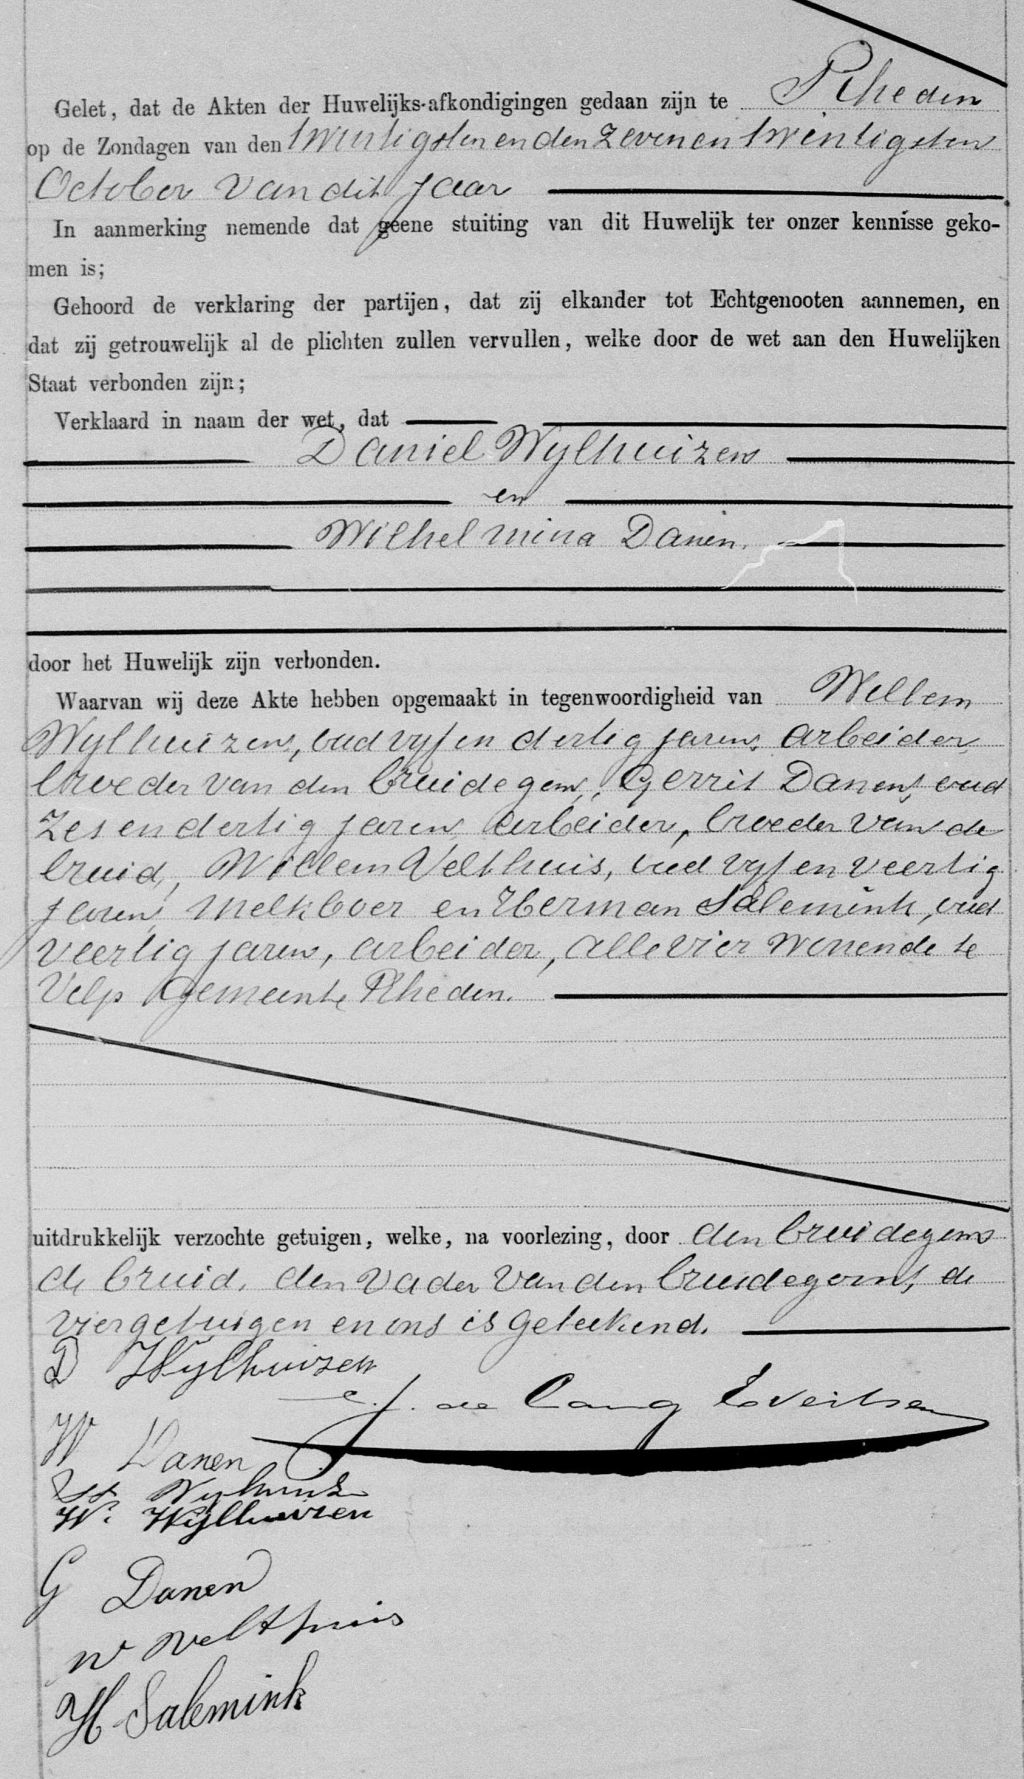 Gelet, dat de Akten der Huwelijks-afkondigingen gedaan zijn te Rheden
op de Zondagen van den twintigsten en den zeven en twintigsten
October van dit jaar
In aanmerking nemende dat geene stuiting van dit Huwelijk ter onzer kennisse geko-
men is;
Gehoord de verklaring der partijen, dat zij elkander tot Echtgenooten aannemen, en
dat zij getrouwelijk al de plichten zullen vervullen, welke door de wet aan den Huwelijken
Staat verbonden zijn;
Verklaard in naam der wet, dat
Daniel Wylhuizen
en
Wilhelmina Danen.
door het Huwelijk zijn verbonden.
Waarvan wij deze Akte hebben opgemaakt in tegenwoordigheid van Willem
Wylhuizen, oud vyf en dertig jaren, arbeider,
broeder van den bruidegom, Gerrit Danen, oud
zes en dertig jaren, arbeider, broeder van de
bruid, Willem Velthuis, oud vyf en veertig
jaren, melkboer en Herman Salemink, oud
veertig jaren, arbeider, alle vier wonende te
Velp gemeente Rheden.
uitdrukkelijk verzochte getuigen, welke, na voorlezing, door den bruidegom
de bruid, den vader van den bruidegom, de
vier getuigen en ons is geteekend.
D Wylhuizen
J. de Lang Evertsen
W Danen
Wylhuizen
W. Wylhuizen
G Danen
W Velthuis
H Salemink